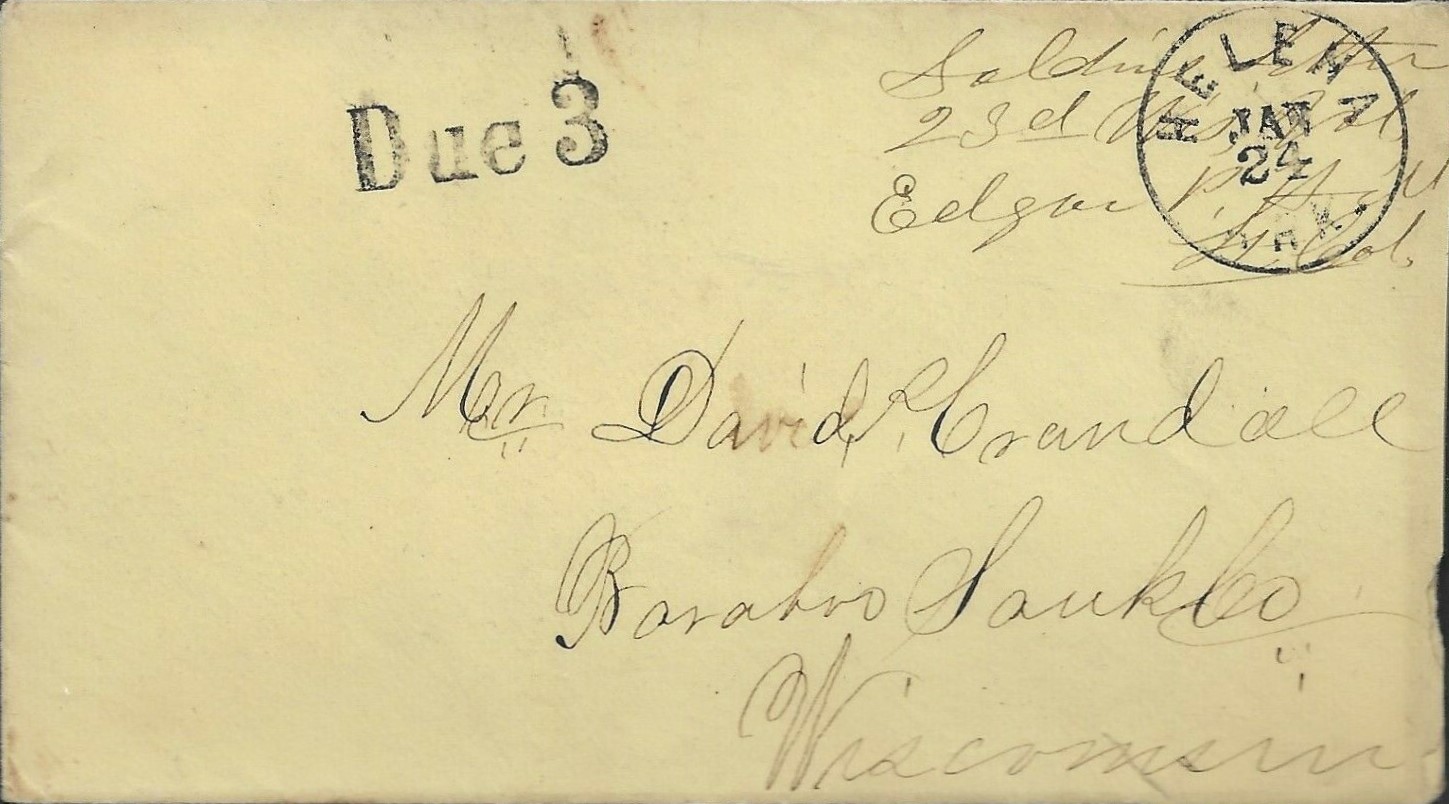 Due 3
HELENA
JAN
24
ARK.
Soldiers letter
23d Wis. Vol
Edgar P.
Lt. Col.
Mr David, Crandall
Baraboo Sauk Co
Wisconsin